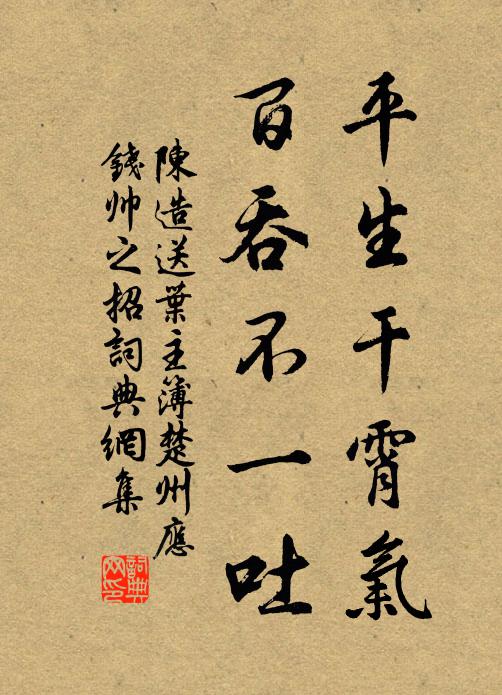 平生干霄氣
百吞不一吐
陳造送葉主簿楚州應
錢帅之招詞典網集
詞典
网印